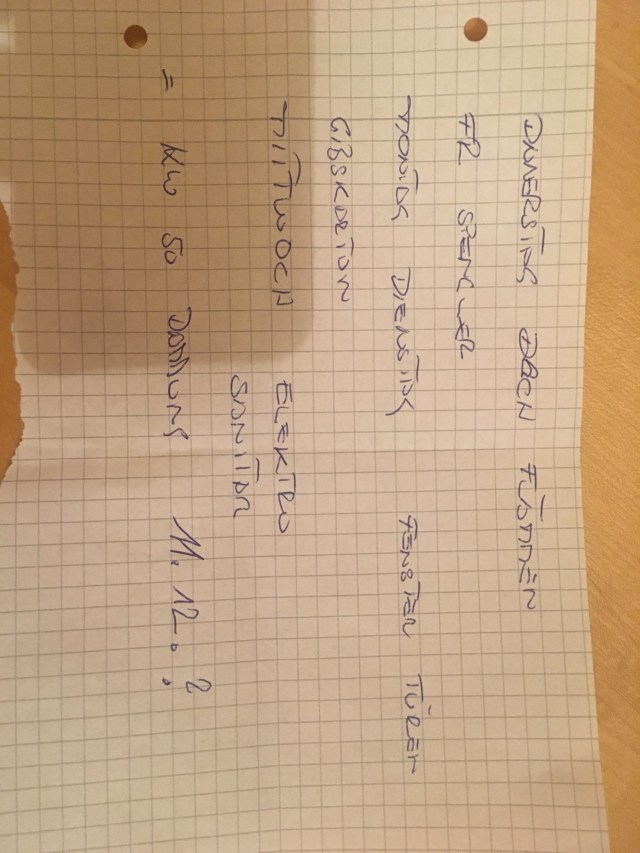 DONNERSTAG DACH FLASCHNER
FR SPENGLER
MONTAG DIENSTAG FENSTER TÜREN
GIBSKARTON
MITTWOCH ELEKTRO
SANITÄR
= KW 50 DÄMMUNG 11. 12. ?